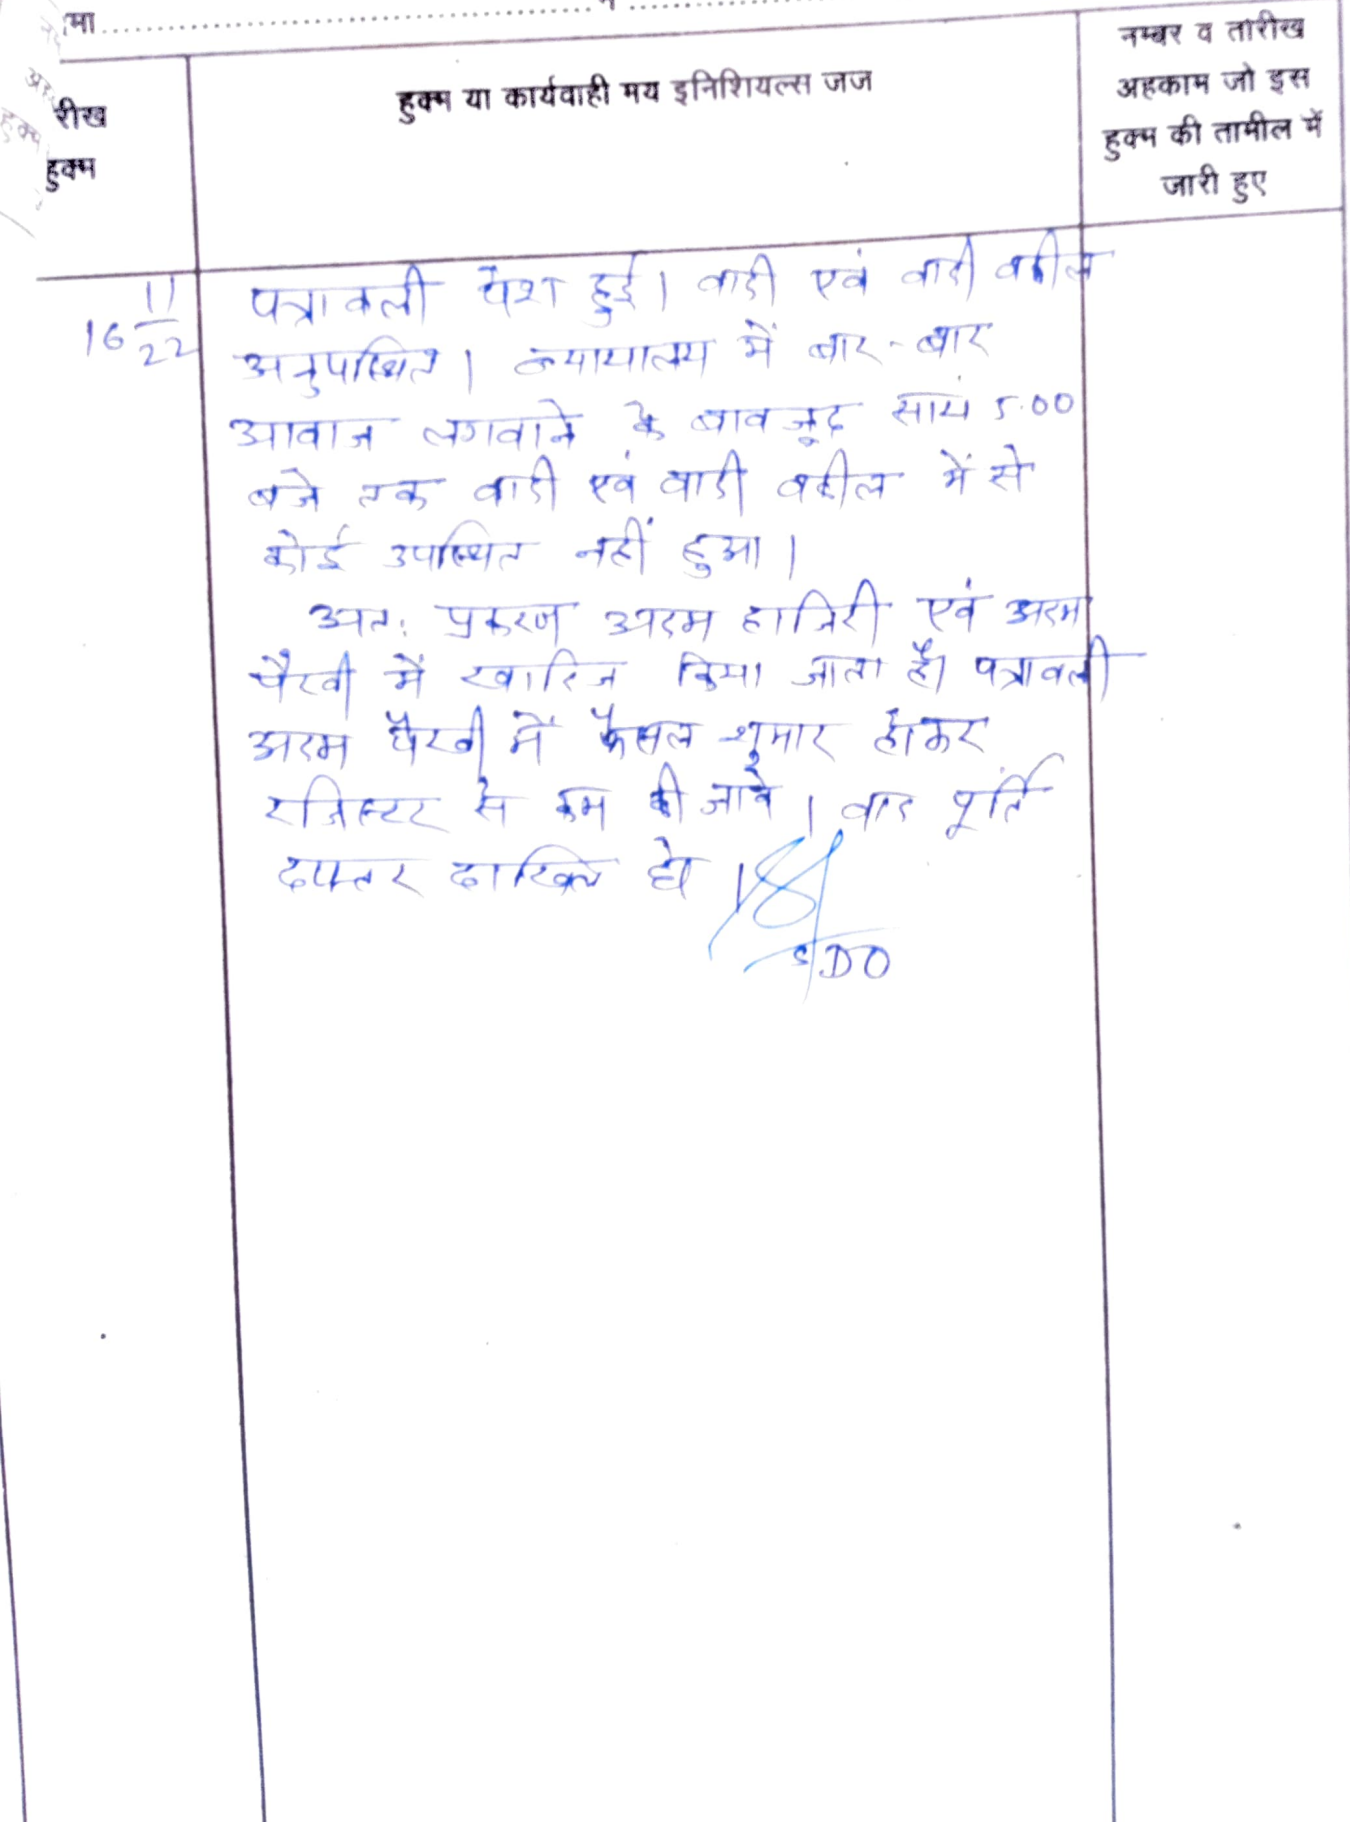 मा
रीख
हुक्म
हुक्म या कार्यवाही मय इनिशियल्स जज
नम्बर व तारीख
अहकाम जो इस
हुक्म की तामील में
जारी हुए
16 11/22
पत्रावली पेश हुई। वादी एवं वादी वकील
अनुपस्थित। न्यायालय में बार-बार
आवाज लगवाने के बावजूद सायं 5.00
बजे तक वादी एवं वादी वकील में से
कोई उपस्थित नहीं हुआ।
अतः प्रकरण अदम हाजिरी एवं अदम
पैरवी में खारिज किया जाता है। पत्रावली
अदम पैरवी में फैसल शुमार होकर
रजिस्टर से कम की जावे। बाद पूर्ति
दफ्तर दाखिल हो।
SDO